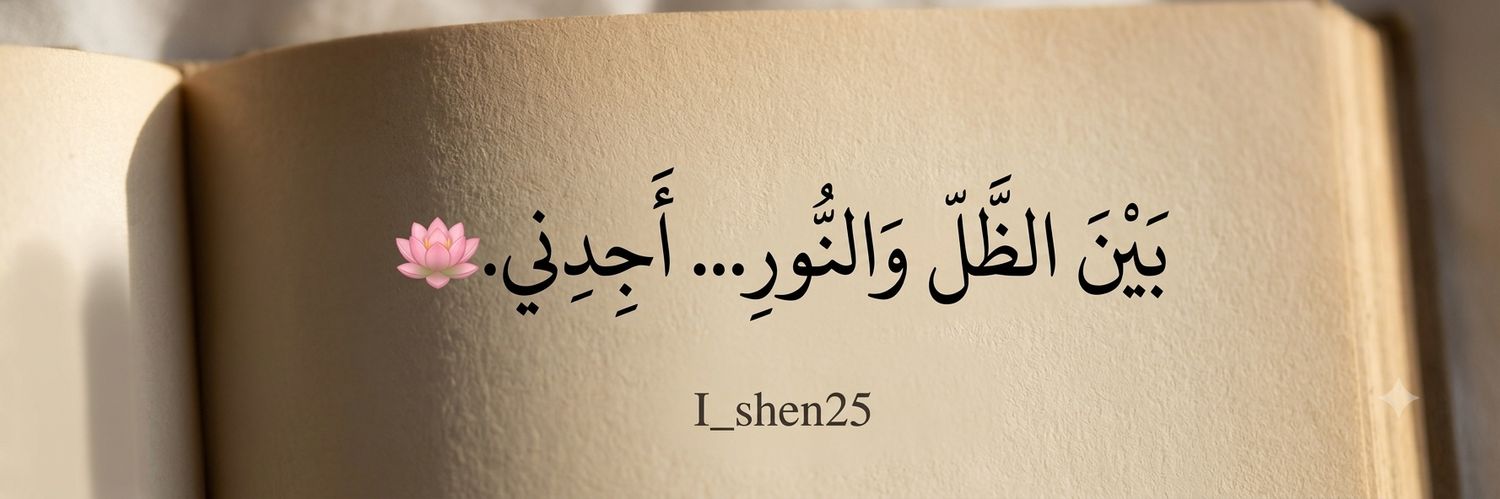 بَيْنَ الظَّلّ وَالنُّورِ... أَجِدِني.🪷
I_shen25